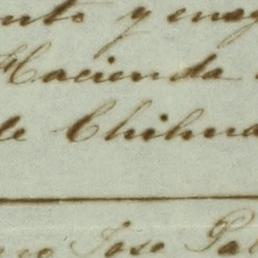 nto y enag
Hacienda
de Chihua
José Pal